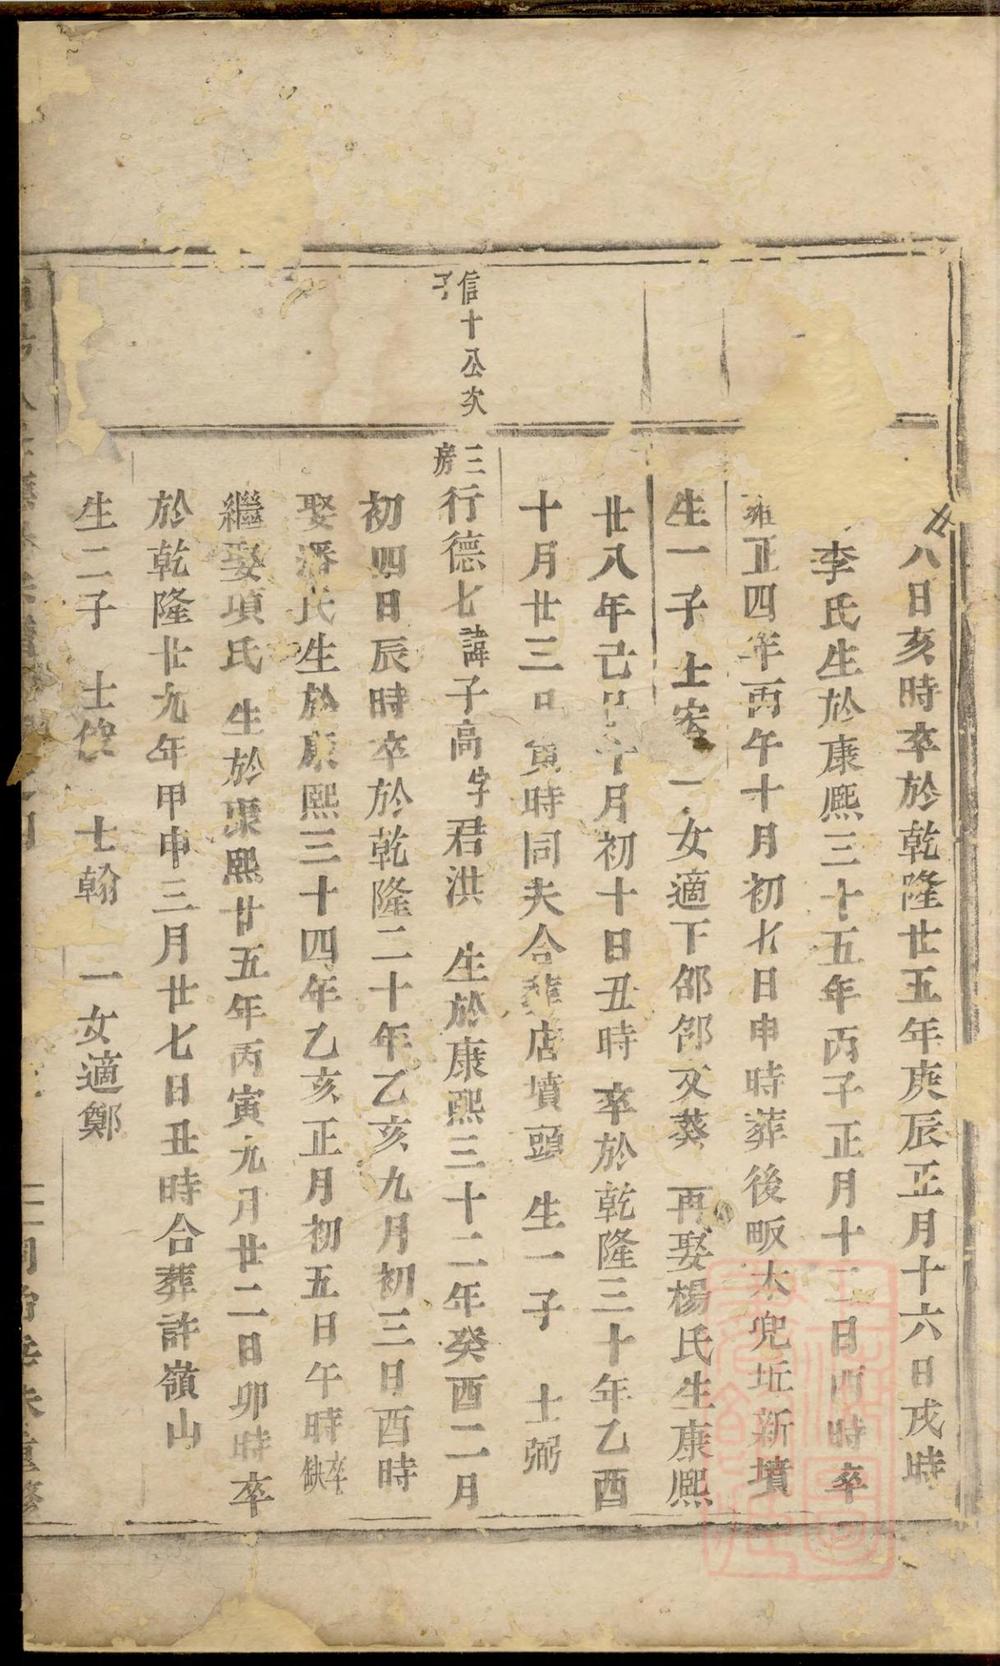 八日亥時卒於乾隆廿五年庚辰正月十六日戌時
李氏生於康熙三十五年丙子正月十二日酉時卒
雍正四年丙午十月初七日申時葬後畈大兜坵新墳
生一子 士 一女適下郃郃文葵 再娶楊氏生康熙
廿八年己 十月初十日丑時 卒於乾隆三十年乙酉
十月廿三日寅時同夫合葬店墳頭 生一子 士弼
信十公次子
三房行德七諱子高字君洪 生於康熙三十二年癸酉二月
初四日辰時卒於乾隆二十年乙亥九月初三日酉時
娶潘氏生於康熙三十四年乙亥正月初五日午時卒缺
繼娶項氏 生於康熙廿五年丙寅九月廿二日卯時卒
於乾隆廿九年甲申三月廿七日丑時合葬許嶺山
生二子 士俊 士翰 一女適鄭